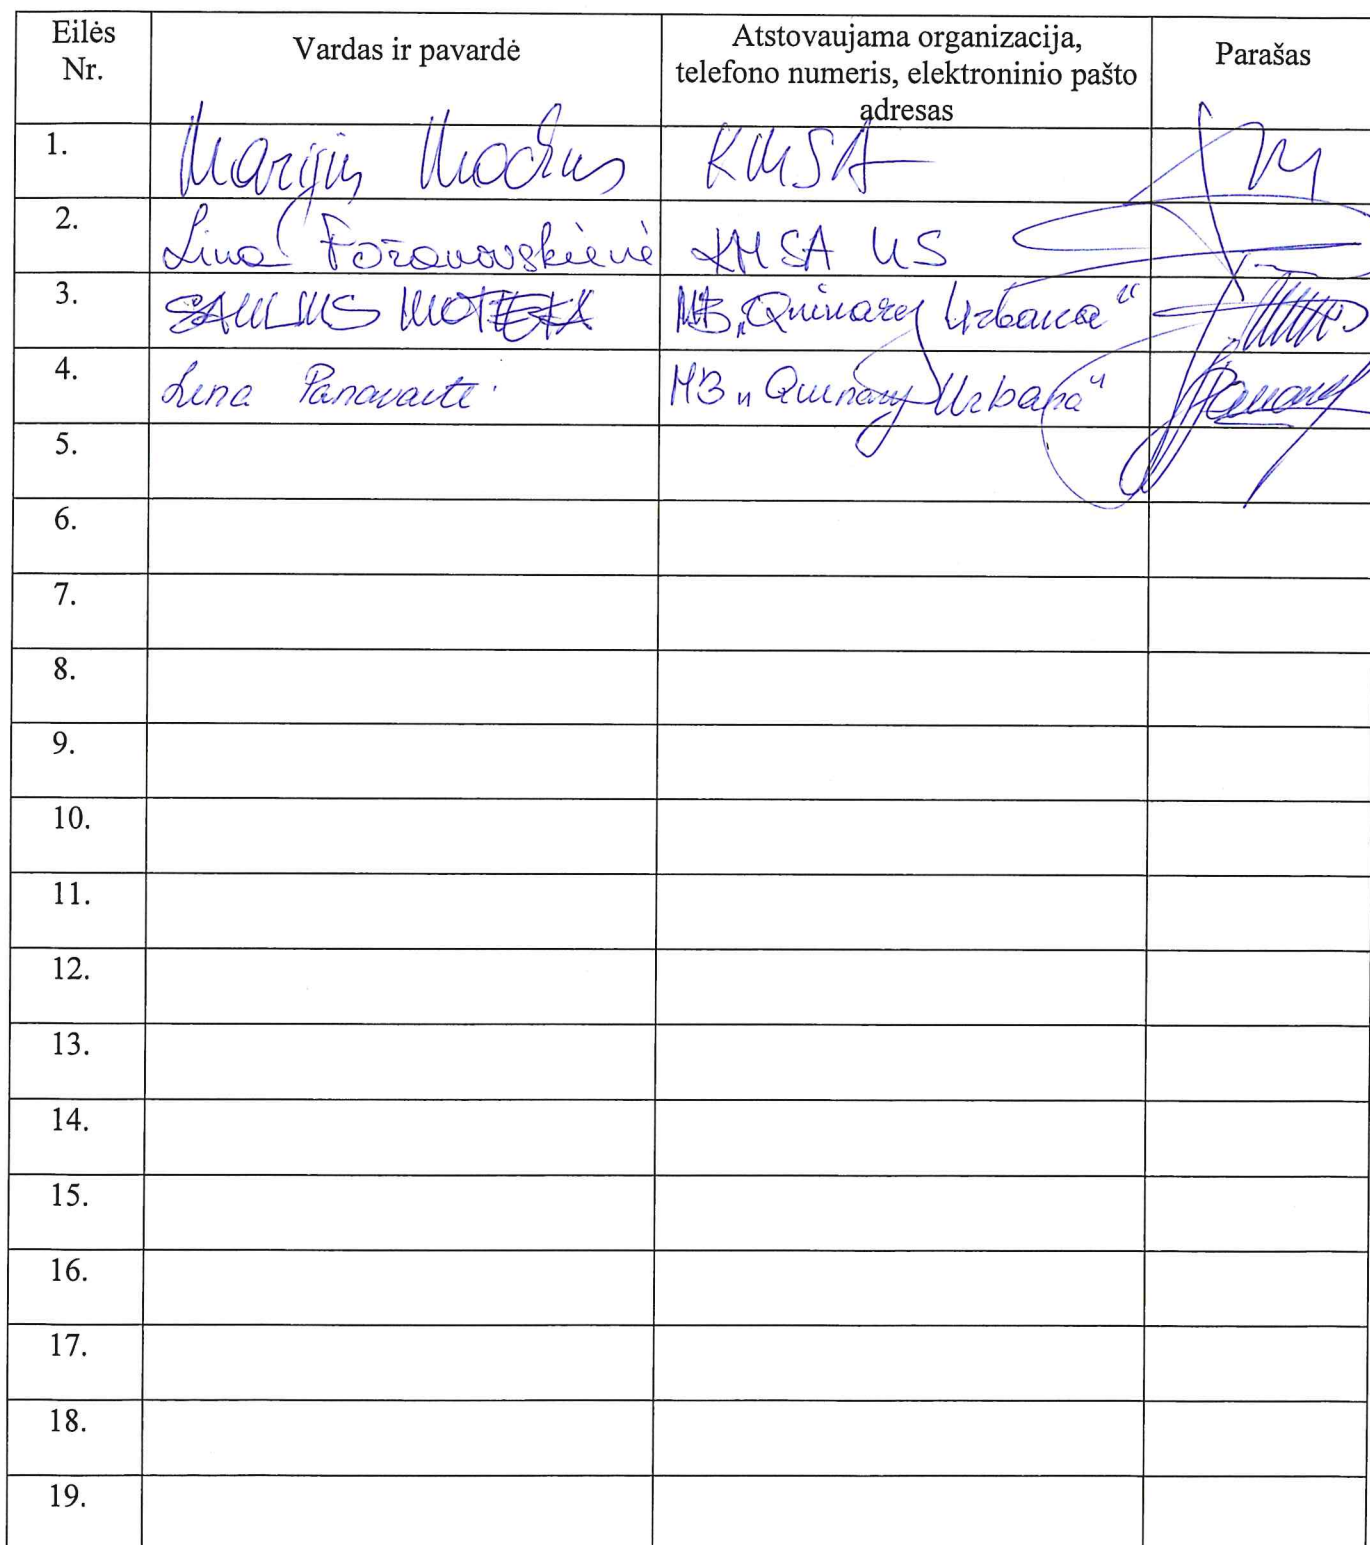 Eilės Nr.
Vardas ir pavardė
Atstovaujama organizacija,
telefono numeris, elektroninio pašto
adresas
Parašas
1. Marijus Mockus KMSA
2. Lina KMSA US
3. SAULIUS MOTIEKA MB „Quinary Urbana“
4. Lina Panavaitė MB „Quinary Urbana“
5.
6.
7.
8.
9.
10.
11.
12.
13.
14.
15.
16.
17.
18.
19.